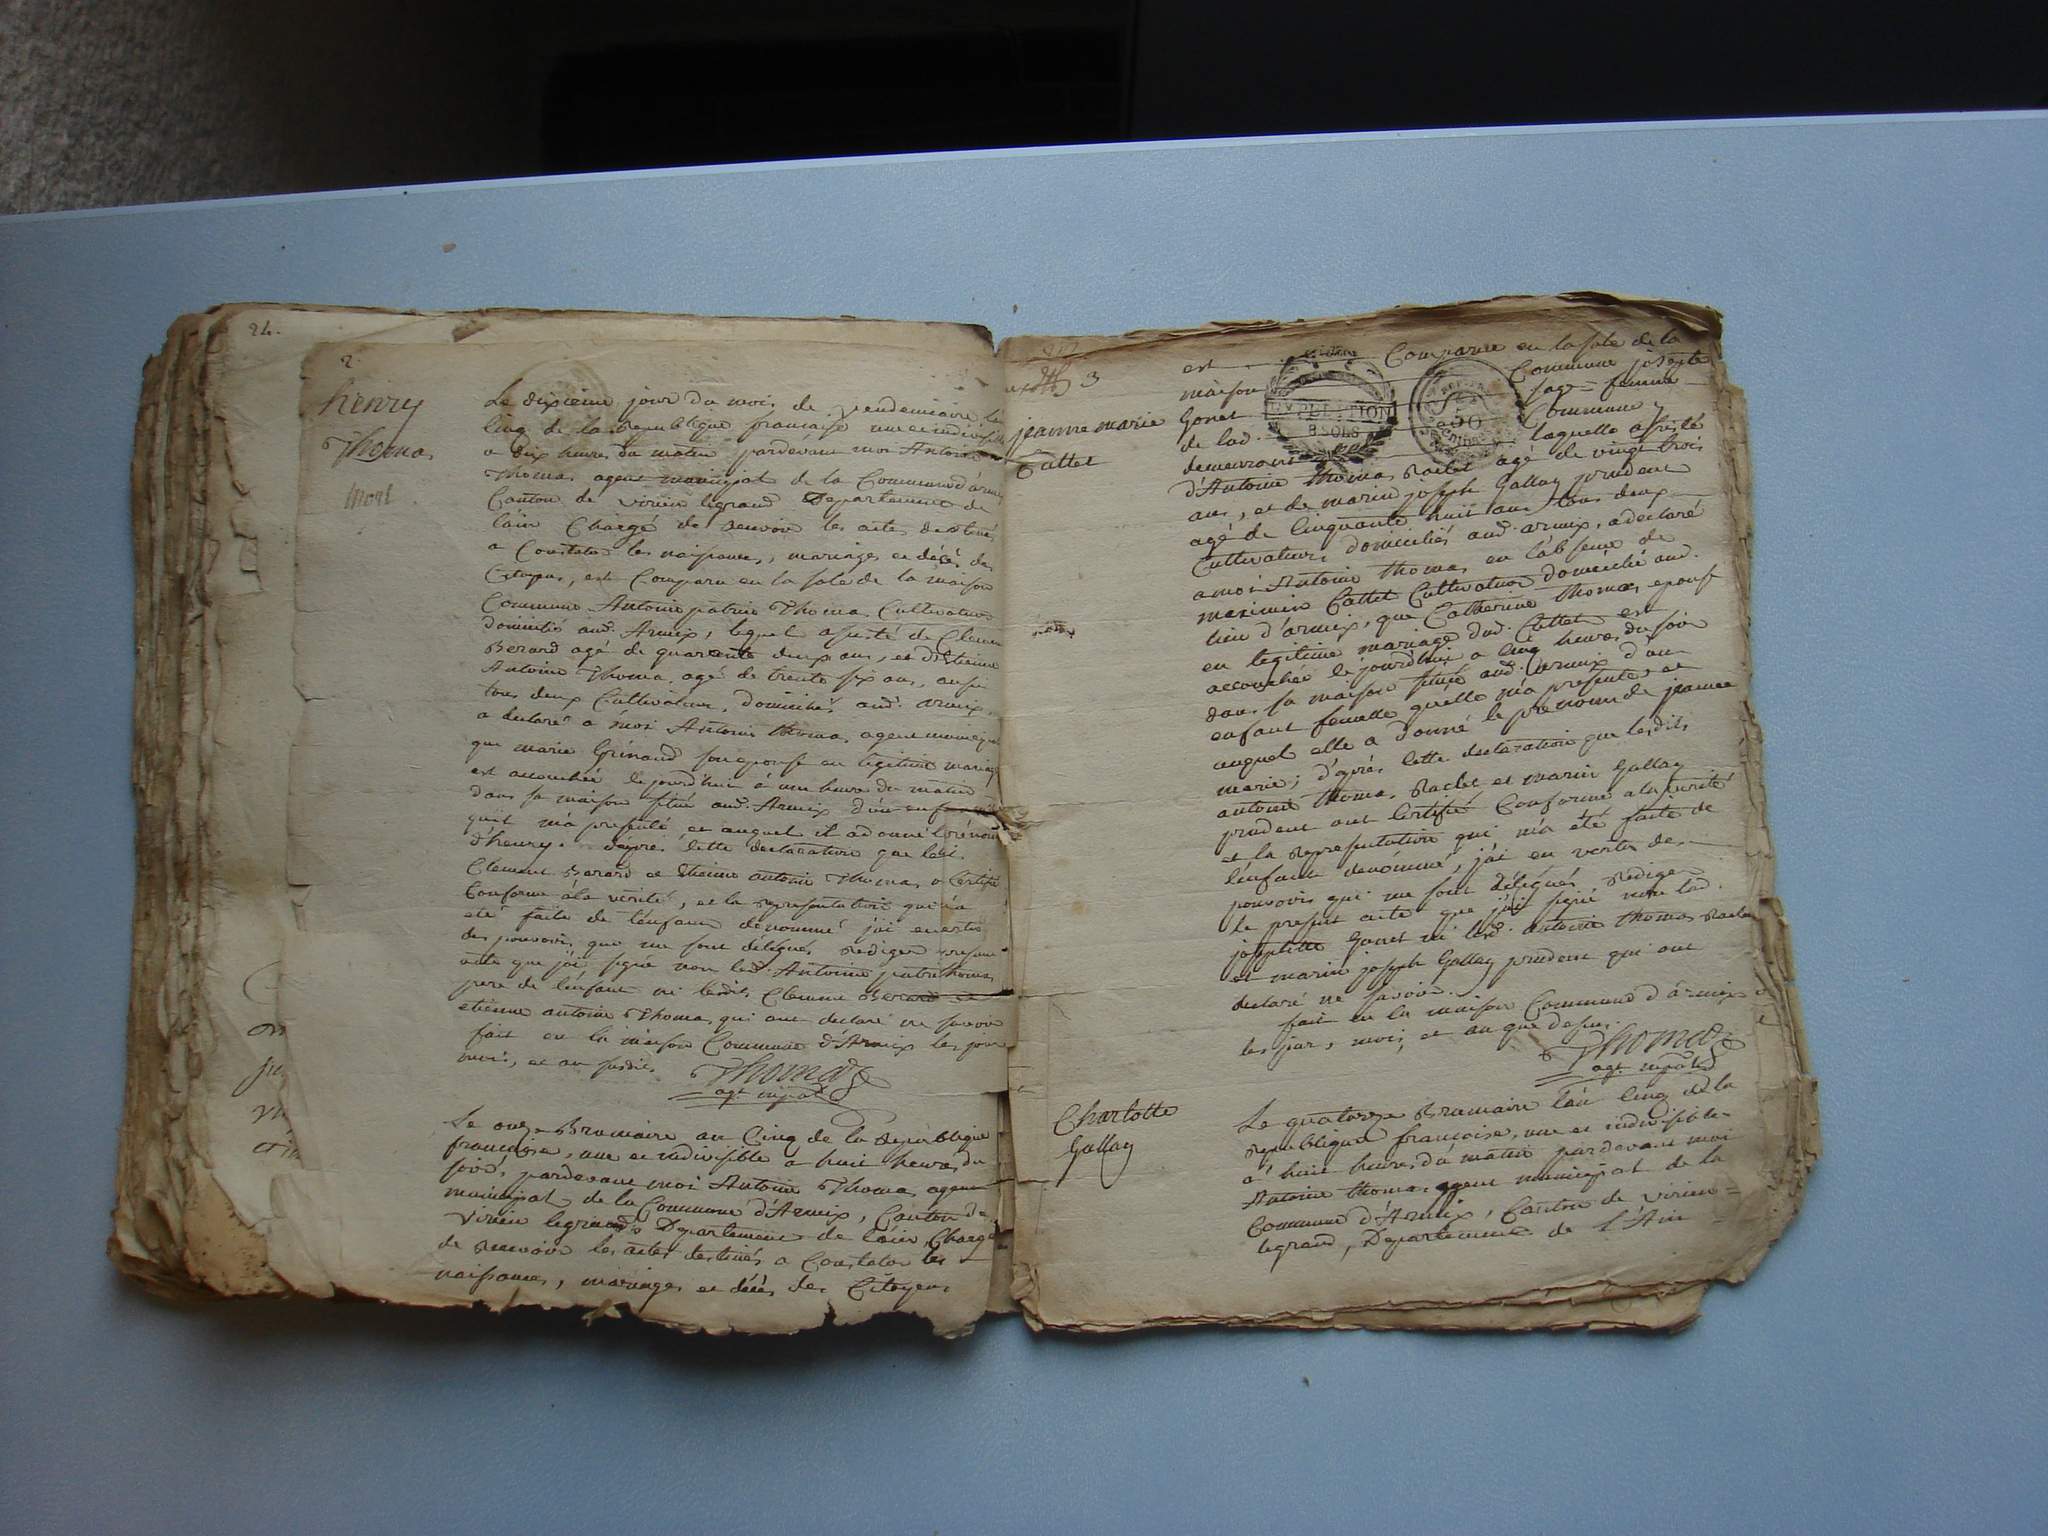 24.
2.
henry
Thomas
mort
Le dixieme jour du mois de vendemiaire l'an
cinq de la Republique francaise une et indivisible
a dix heures du matin pardevant moi Antoine
Thomas agent municipal de la Commune d'armix
Canton de virieu legrand Departement de
l'ain Chargé de recevoir les actes destinés
a Constater les naissances, mariages et décès des
Citoyens, est Comparu en la sale de la maison
Commune Antoine patrin Thomas Cultivateur
domicilié aud. Armix, lequel assisté de Clement
Berard agé de quarente deux ans, et d'Etienne
Antoine Thomas, agé de trente six ans, aussi
tous deux Cultivateurs, domiciliés aud. armix,
a declaré a moi Antoine thomas agent municipal
que marie Grinand son epouse en légitime mariage
est accouchée le jourd'hui à une heure du matin
dans sa maison situé aud. Armix d'un enfant
qu'il m'a presenté et auquel il a donné le prénom
d'henry. d'après cette declaration que les
Clement Berard et Etienne antoine Thomas o Certifié
Conforme à la vérité, et la representation qui m'a
eté faite de l'enfant dénommé j'ai en vertu
des pouvoirs qui me sont délégués rediger present
acte que j'ai signé non led. Antoine patri thomas
pere de l'enfant ni lesdits Clement Berard et
etienne antoine Thomas, qui ont declaré ne savoir
fait en la maison Commune d'Armix les jour
mois, et an susdits
Thomas
agt. mpal
Le onze Brumaire an Cinq de la Republique
française, une et indivisible à huit heures du
soir, pardevant moi Antoine Thomas agent
municipal de la Commune d'Armix, Canton de
Virieu legrand Departement de l'ain, Chargé
de Recevoir les actes destinés a Constater les
naissances, mariages et décès des Citoyens
3
jeanne marie
Cattet
est Comparue en la sale de la
maison Commune josepte
Gonet sage = femme
de lad. Commune,
EXPEDITION
8 SOLS
5
50
demeurant laquelle assisté
d'Antoine Thomas Raclet agé de vingt trois
ans, et de marin joseph Gallay prudent
agé de cinquante huit ans tous deux
Cultivateurs domiciliés aud. armix, a declaré
a moi Antoine thomas en l'absence de
maximin Cattet Cultivateur domicilié aud.
lieu d'armix, que Catherine Thomas, epouse
en legitime mariage dud. Cattet est
accouchée le jourd'hui a cinq heures du soir
dans sa maison situé aud. armix d'un
enfant femelle quelle m'a presenté et
auquel elle a donné le prenom de jeanne
marie; d'après cette declaration que lesdits
antoine thomas Raclet et marin Gallay
prudent ont Certifié Conforme a la verité
et la representation qui m'a été faite de
l'enfant denommé, j'ai en vertu des
pouvoirs qui me sont délégués Rediger
le present acte que j'ai signé non lad.
josephte Gonet ni led. antoine thomas Raclet
et marin joseph Gallay prudent qui ont
declaré ne savoir.
fait en la maison Commune d'armix
les jour, mois, et an que dessus.
Thomas
agt. mpal
Charlotte
Gallay
Le quatorze Brumaire l'an cinq de la
Republique françoise, une et indivisible
à huit heures du matin pardevant moi
Antoine thomas agent municipal de la
Commune d'Armix, Canton de virieu =
legrand, Departement de l'Ain